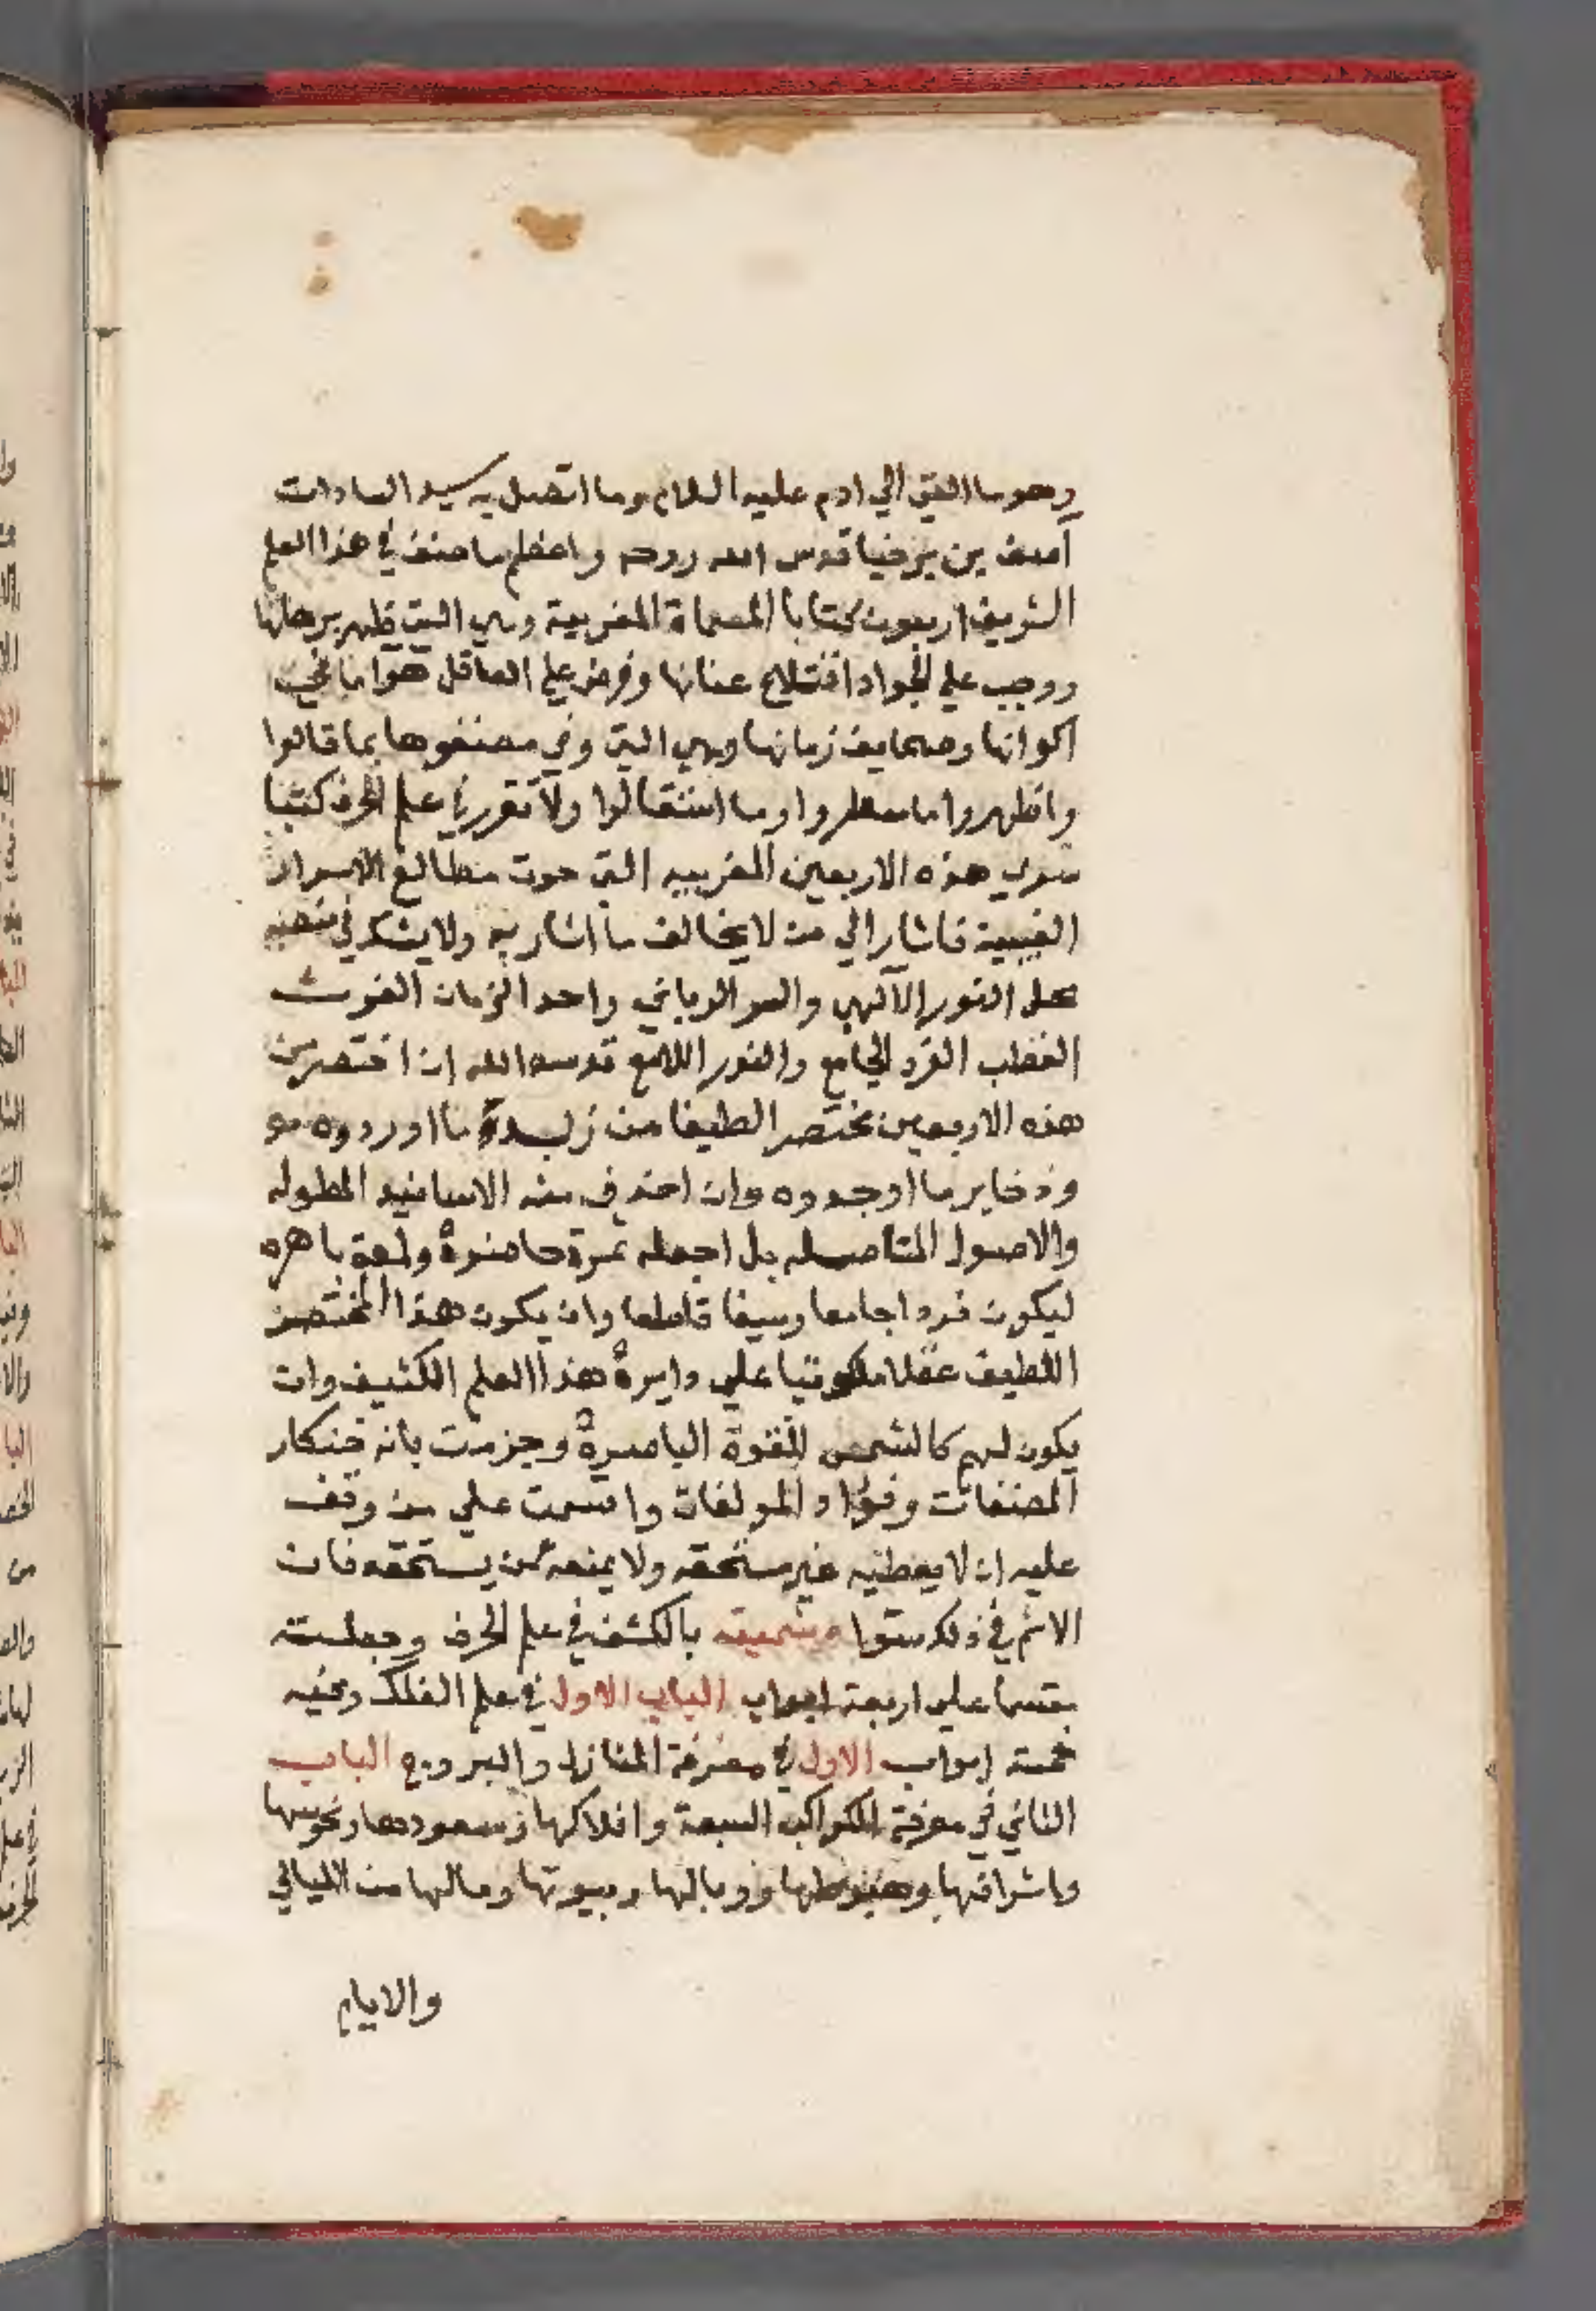 وهو ما القي الي ادم عليه السلام وما اتصل به سيد السادات
آصف بن برخيا قدس الله روحه واعظم ما صنف في هذا العلم
الشريف اربعون كتابا المسماة المغربية وهي التي ظهر برهانها
ووجب علي الجواد عنانها وفرض علي العاقل
اكوانها وصحايف زمانها وهي التي وفي مصنفوها بما قالوا
واظهروا ما سطروا وما استقالوا ولا تقرر في علم الحرف كتبا
سوي هذه الاربعين المغربيه التي حوت مطالع الاسرار
الغيبية فاشار الي من لا يخالف ما اشار به ولا يشك في
محل النور الآلهي والسر الرباني واحد الزمان الغوث
القطب الفرد الجامع والنور اللامع قدسه الله ان اختصر من
هذه الاربعين مختصرا لطيفا من زبدة ما اوردوه
وذخاير ما اوجدوه وان احذف منه الاسانيد المطوله
والاصول المتاصله بل اجعله ثمرة حاضرة ولمعة باهره
ليكون فردا جامعا وسيفا قاطعا وان يكون هذا المختصر
اللطيف عقلا ملكوتيا علي دايرة هذا العلم الكثيف وان
يكون لهم كالشمس للقوة الباصرة وجزمت بانه خنكار
المصنفات وفؤاد المولفات واقسمت علي من وقف
عليه ان لا يعطيه غير مستحقه ولا يمنعه عمن يستحقه فان
الاثم في ذلك ستوا وسميته بالكشف في علم الحرف وجعلته
مقسما علي اربعة ابواب الباب الاول في علم الفلك وفيه
خمسة ابواب الاول في معرفة المنازل والبروج الباب
الثاني في معرفة الكواكب السبعة وافلاكها وسعودها ونحوسها
واشرافها وهبوطها ووبالها وبيوتها ومالها من الليالي
والايام